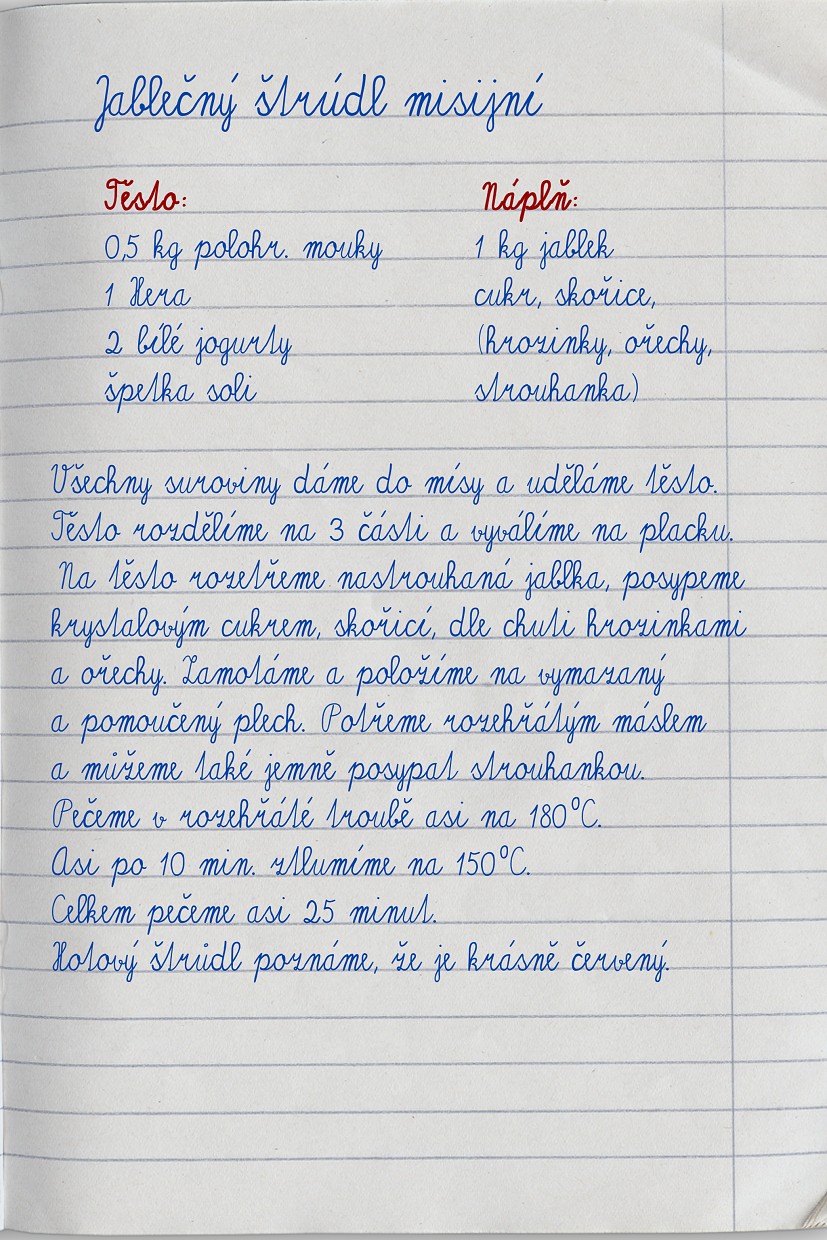 Jablečný štrúdl misijní
Těsto:
0,5 kg polohr. mouky
1 Hera
2 bílé jogurty
špetka soli
Náplň:
1 kg jablek
cukr, skořice,
(hrozinky, ořechy,
strouhanka)
Všechny suroviny dáme do mísy a uděláme těsto.
Těsto rozdělíme na 3 části a vyválíme na placku.
Na těsto rozetřeme nastrouhaná jablka, posypeme
krystalovým cukrem, skořicí, dle chuti hrozinkami
a ořechy. Zamotáme a položíme na vymazaný
a pomoučený plech. Potřeme rozehřátým máslem
a můžeme také jemně posypat strouhankou.
Pečeme v rozehřáté troubě asi na 180°C.
Asi po 10 min. ztlumíme na 150°C.
Celkem pečeme asi 25 minut.
Hotový štrůdl poznáme, že je krásně červený.